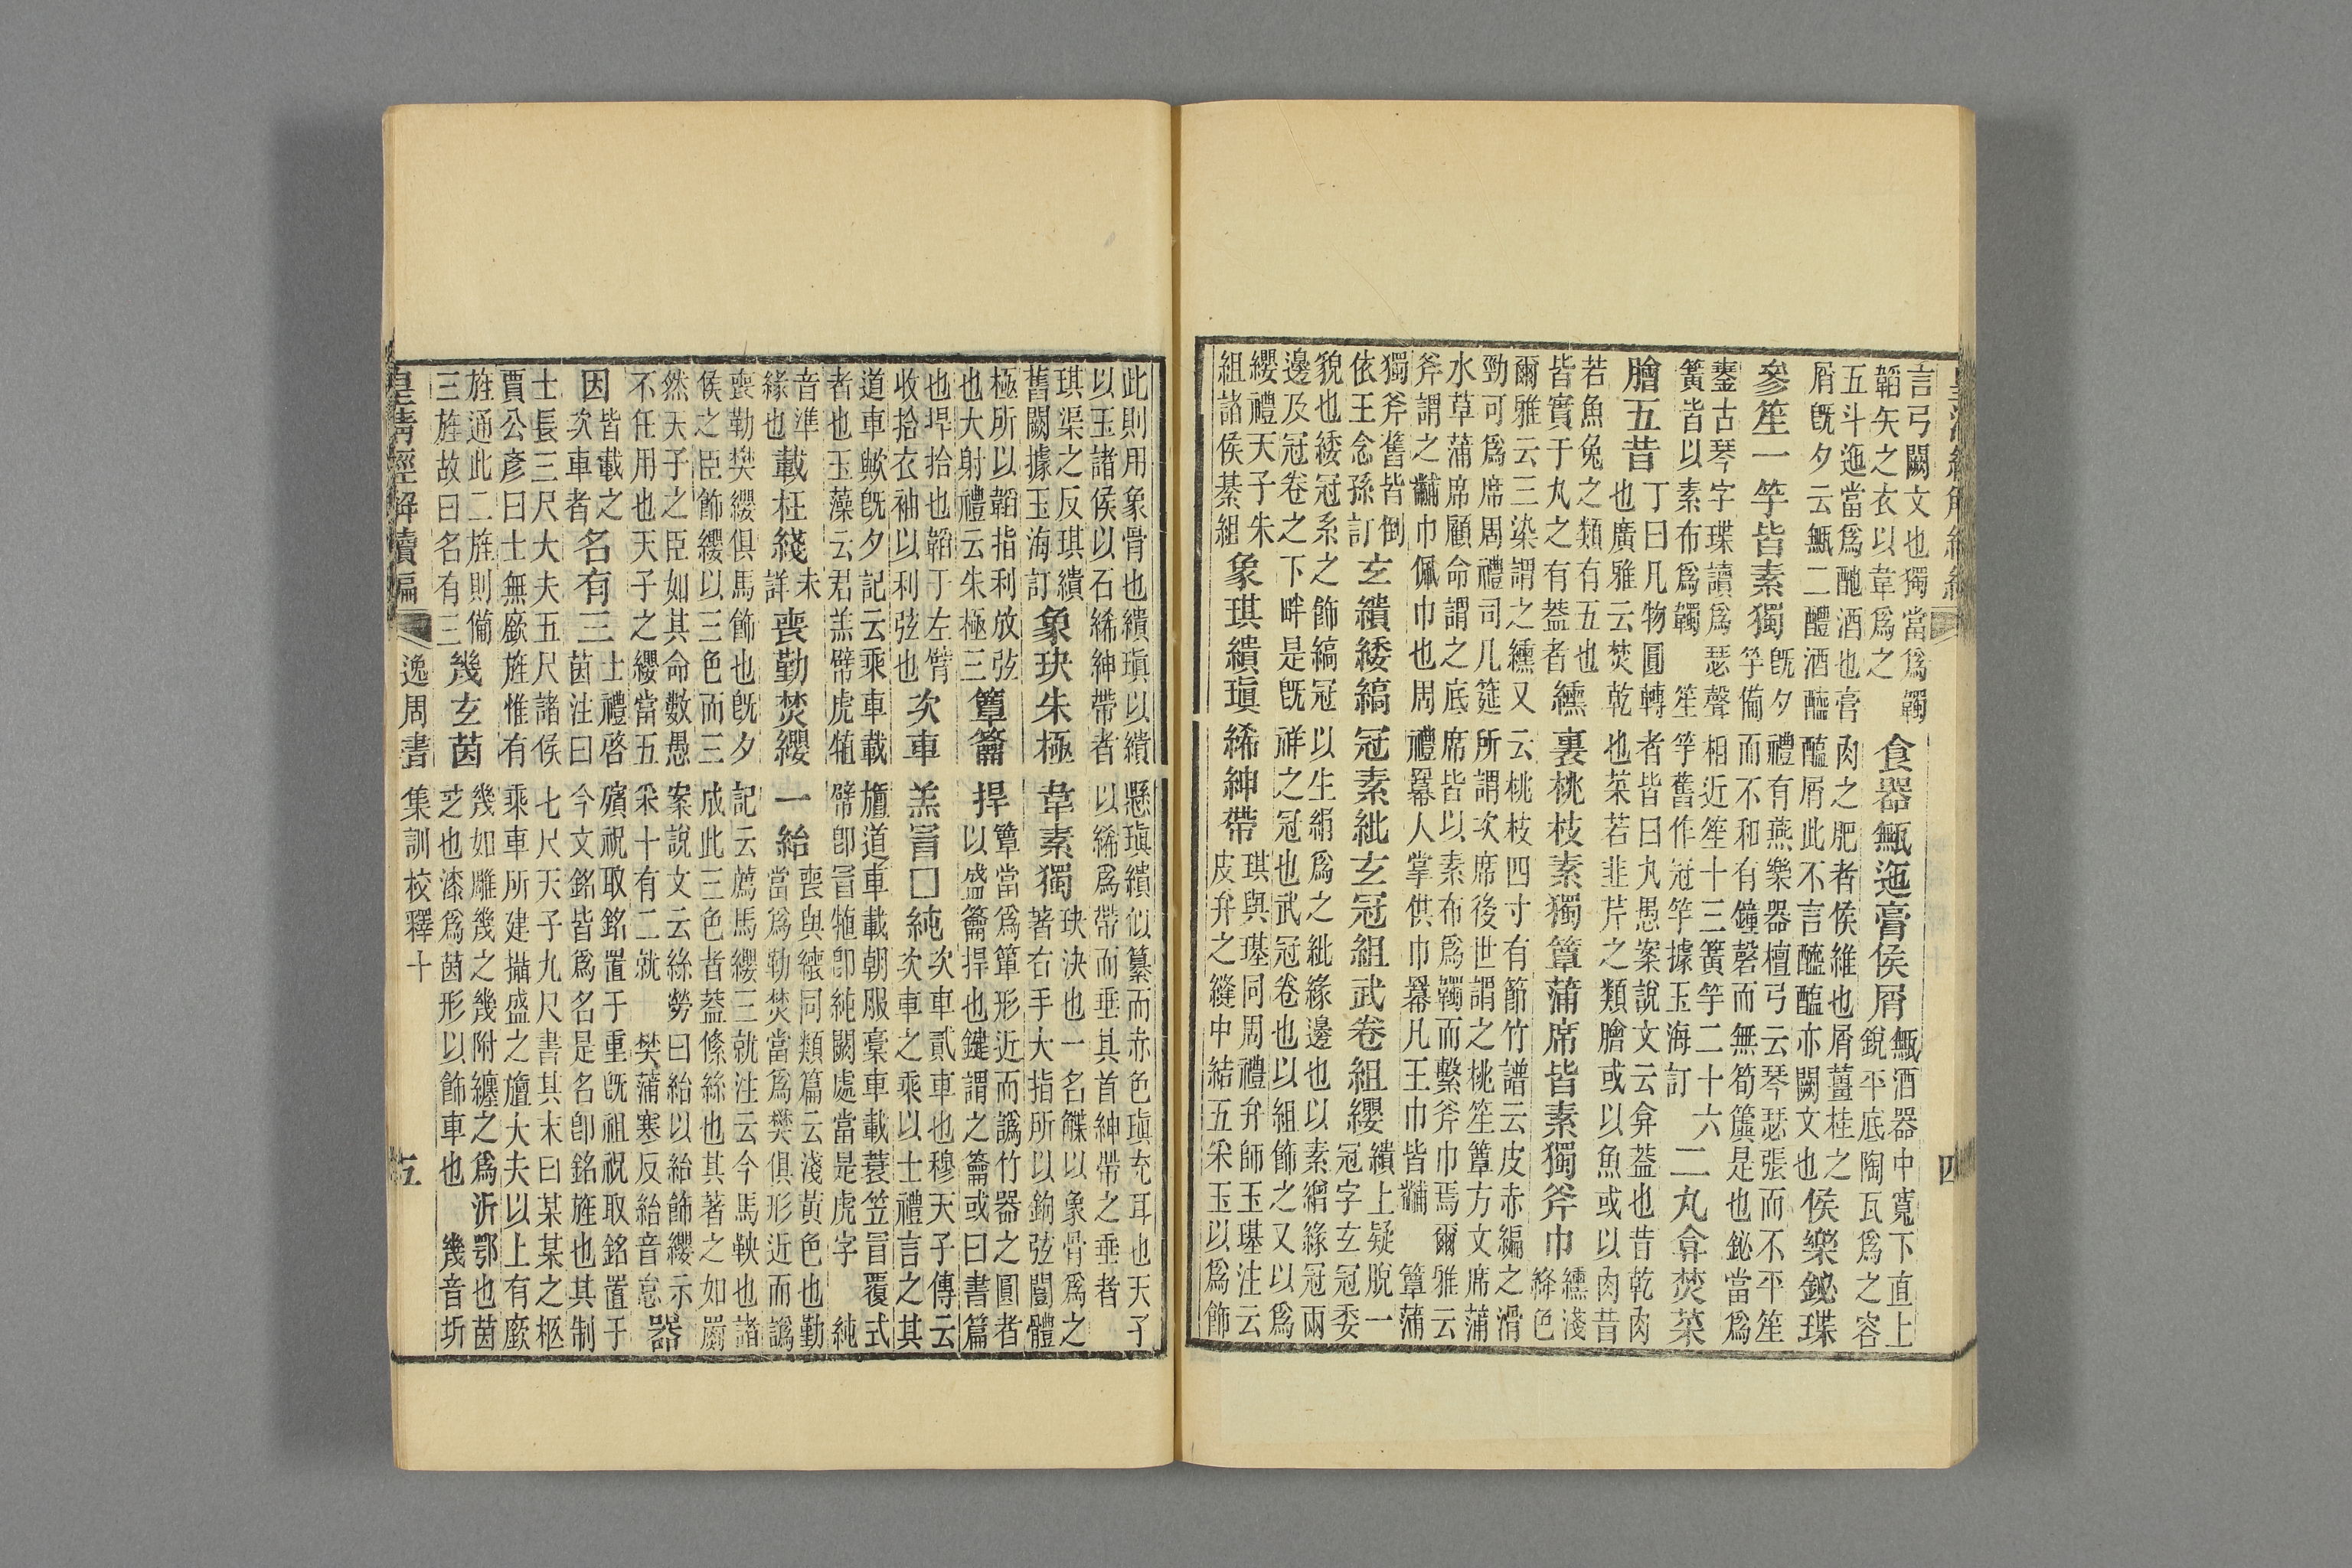 皇清經解續編 四
言弓闕文也獨當爲韣
韜矢之衣以韋爲之
食器甒迤膏侯屑
甒酒器中寬下直上
銳平底陶瓦爲之容
五斗迤當爲酏酒也膏肉之肥者侯維也屑薑桂之
屑旣夕云甒二醴酒醯醢屑此不言醯醢亦闕文也
侯樂鉍瑹
參笙一竽皆素獨
旣夕禮有燕樂器檀弓云琴瑟張而不平笙
竽備而不和有鐘磬而無筍簴是也鉍當爲
鏊古琴字瑹讀爲瑟聲相近笙十三簧竽二十六
簧皆以素布爲韣 笙竽舊作冠竽據玉海訂
二丸弇焚菜
膾五昔
丁曰凡物圓轉者皆曰丸愚案說文云弇葢也昔乾肉
也廣雅云焚乾也菜若韭芹之類膾或以魚或以肉昔
若魚兔之類有五也
皆實于丸之有葢者
纁裏桃枝素獨簟蒲席皆素獨斧巾
纁淺
絳色
爾雅云三染謂之纁又云桃枝四寸有節竹譜云皮赤編之滑
勁可爲席周禮司几筵所謂次席後世謂之桃笙簟方文席蒲
水草蒲席顧命謂之底席皆以素布爲韣而繫斧巾焉爾雅云
斧謂之黼巾佩巾也周禮羃人掌供巾羃凡王巾皆黼 簟蒲
獨斧舊皆倒
依王念孫訂
玄繢緌縞冠素紕玄冠組武卷組纓
繢上疑脫一
冠字玄冠委
貌也緌冠系之飾縞冠以生絹爲之紕緣邊也以素繒緣冠兩
邊及冠卷之下畔是旣祥之冠也武冠卷也以組飾之又以爲
纓禮天子朱
組諸侯綦組
象琪繢瑱絺紳帶
琪與璂同周禮弁師玉璂注云
皮弁之縫中結五采玉以爲飾
此則用象骨也繢瑱以繢懸瑱繢似纂而赤色瑱充耳也天子
以玉諸侯以石絺紳帶者以絺爲帶而垂其首紳帶之垂者
琪渠之反琪繢
舊闕據玉海訂
象玦朱極韋素獨
玦決也一名韘以象骨爲之
著右手大指所以鉤弦闓體
極所以韜指利放弦
也大射禮云朱極三
簟籥捍
簟當爲簞形近而譌竹器之圓者
以盛籥捍也鍵謂之籥或曰書篇
也捍拾也韜于左臂
收拾衣袖以利弦也
次車羔冒□純
次車貳車也穆天子傳云
次車之乘以士禮言之其
道車歟旣夕記云乘車載旜道車載朝服稾車載蓑笠冒覆式
者也玉藻云君羔幦虎犆幦卽冒犆卽純闕處當是虎字 純
音準
緣也
載枉綫
未
詳
喪勤焚纓一紿
喪與繐同類篇云淺黃色也勤
當爲勒焚當爲樊俱形近而譌
喪勒樊纓俱馬飾也旣夕記云薦馬纓三就注云今馬鞅也諸
侯之臣飾纓以三色而三成此三色者葢絛絲也其著之如罽
然天子之臣如其命數愚案說文云絲勞曰紿以紿飾纓示
不任用也天子之纓當五采十有二就 樊蒲寒反紿音怠
器
因
皆載之
次車者
名有三
士禮啓殯祝取銘置于重旣祖祝取銘置于
茵注曰今文銘皆爲名是名卽銘旌也其制
士長三尺大夫五尺諸侯七尺天子九尺書其末曰某某之柩
賈公彥曰士無廞旌惟有乘車所建攝盛之旜大夫以上有廞
旌通此二旌則備
三旌故曰名有三
幾玄茵
幾如雕幾之幾附纏之爲沂鄂也茵
玄也漆爲茵形以飾車也 幾音圻
皇清經解續編 逸周書集訓校釋十 五